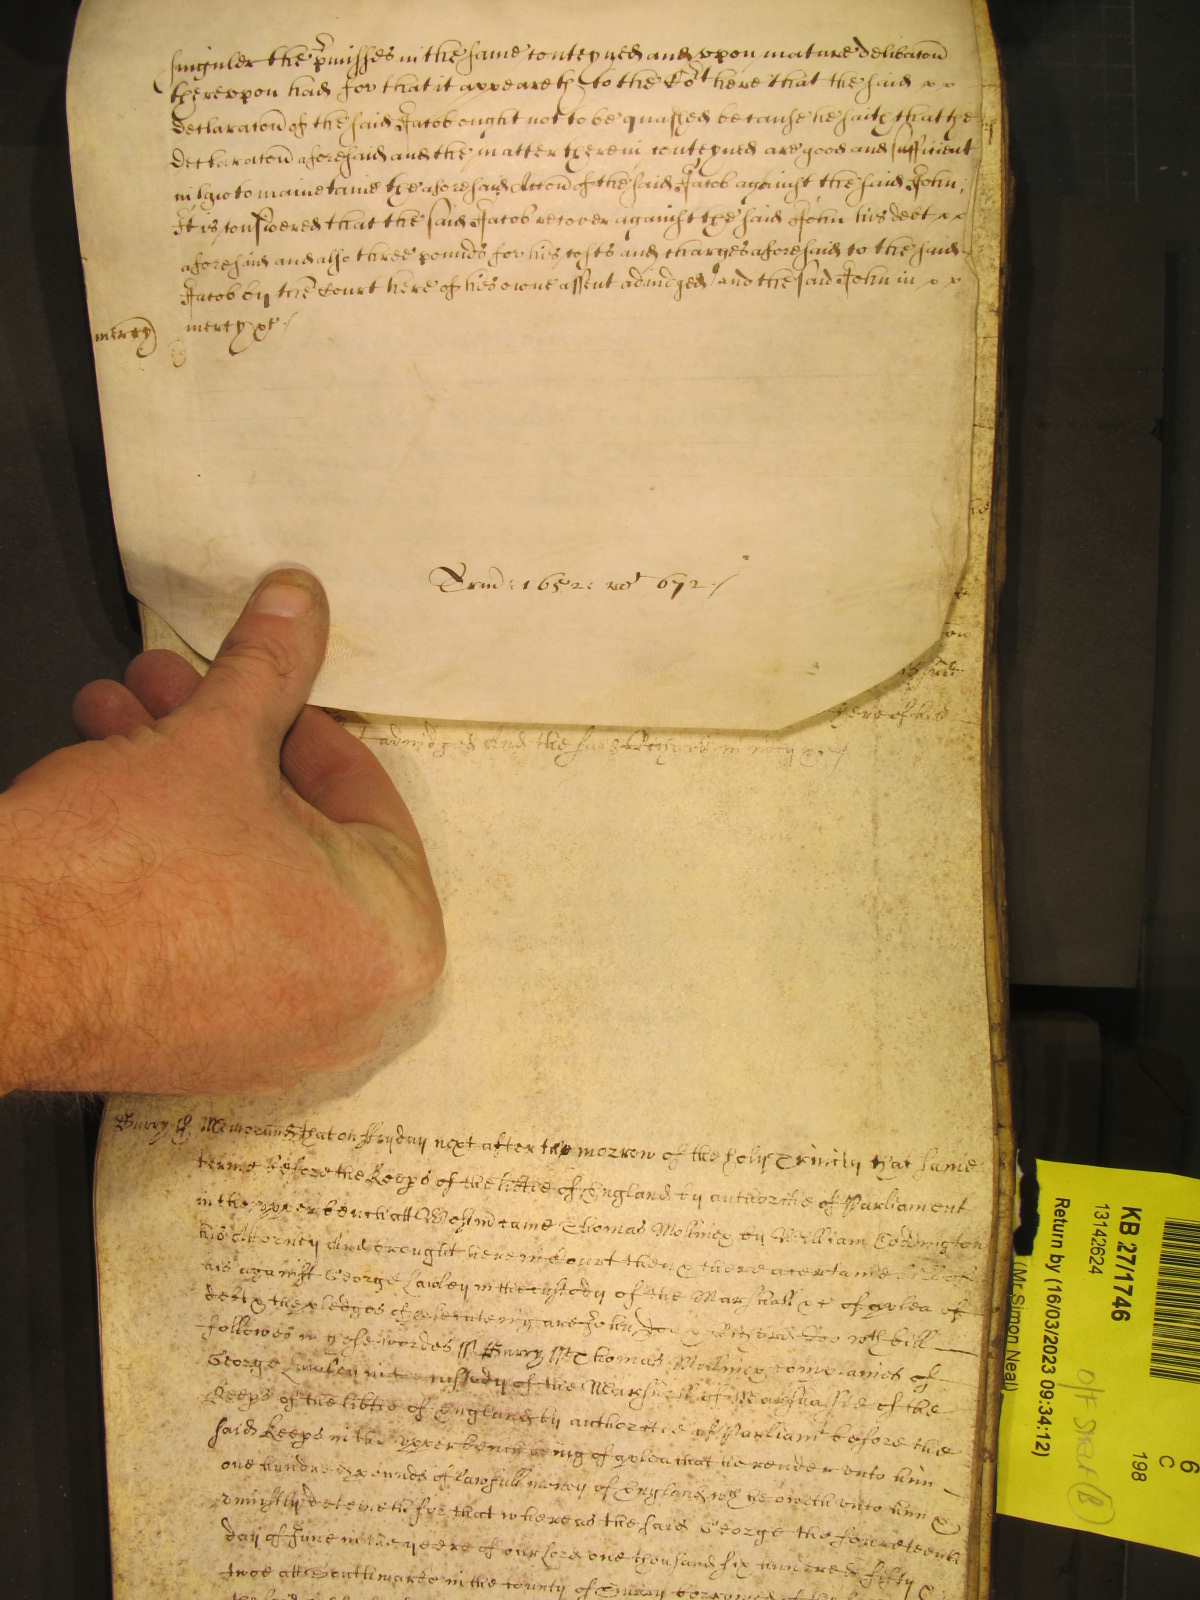 singuler the p'misses in the same conteyned and vpon mature delibacon
therevpon had for that it appeareth to the Co't here that the said x x
declaracon of the said Jacob ought not to be quashed because he saith that the
declaracon aforesaid and the matter therein conteyned are good and sufficient
in lawe to mainetaine the aforesaid Accon of the said Jacob against the said John,
It is considered that the said Jacob recover against the said John his debt x x
aforesaid and also three pounds for his costs and charges aforesaid to the said
Jacob by the Court here of his owne assent adiudged And the said John in x x
mercy
mercy &c /
Trin: 1652: ro 672 /
on
here of his
adiudged And the said in mercy &c /
Surry ss Memorand that on Fryday next after the morrow of the holy Trinity that same
terme before the Keeps of the libtie of England by authoritie of Parliament
in the vpper bench att Westm came Thomas Molinex by William Coddington
his Attorney And brought here in Court then & there a certaine bill of
his against George Lawley in the custody of the Marshall &c of a plea of
debt & the pledges of prosecuteing are John Doe & Richard Roe wch bill
followes in these wordes ss Surry ss Thomas Molinex complaines of
George Lawley in the custody of the Marshall of the Marshalsie of the
Keeps of the libtie of England by authoritie of Parliamt before the
said Keeps in the vpper bench being of a plea that he render vnto him
one hundred pounds of lawfull money of England wch he oweth vnto him &
vniustly deteineth for that whereas the said George the fourteenth
day of June in the yeere of our Lord one thousand six hundred fifty &
twoe att Southwarke in the county of Surry borrowed of the
KB 27/1746
13142624
Return by (16/03/2023 09:34:12)
(Mr Simon Neal)
6
C
198